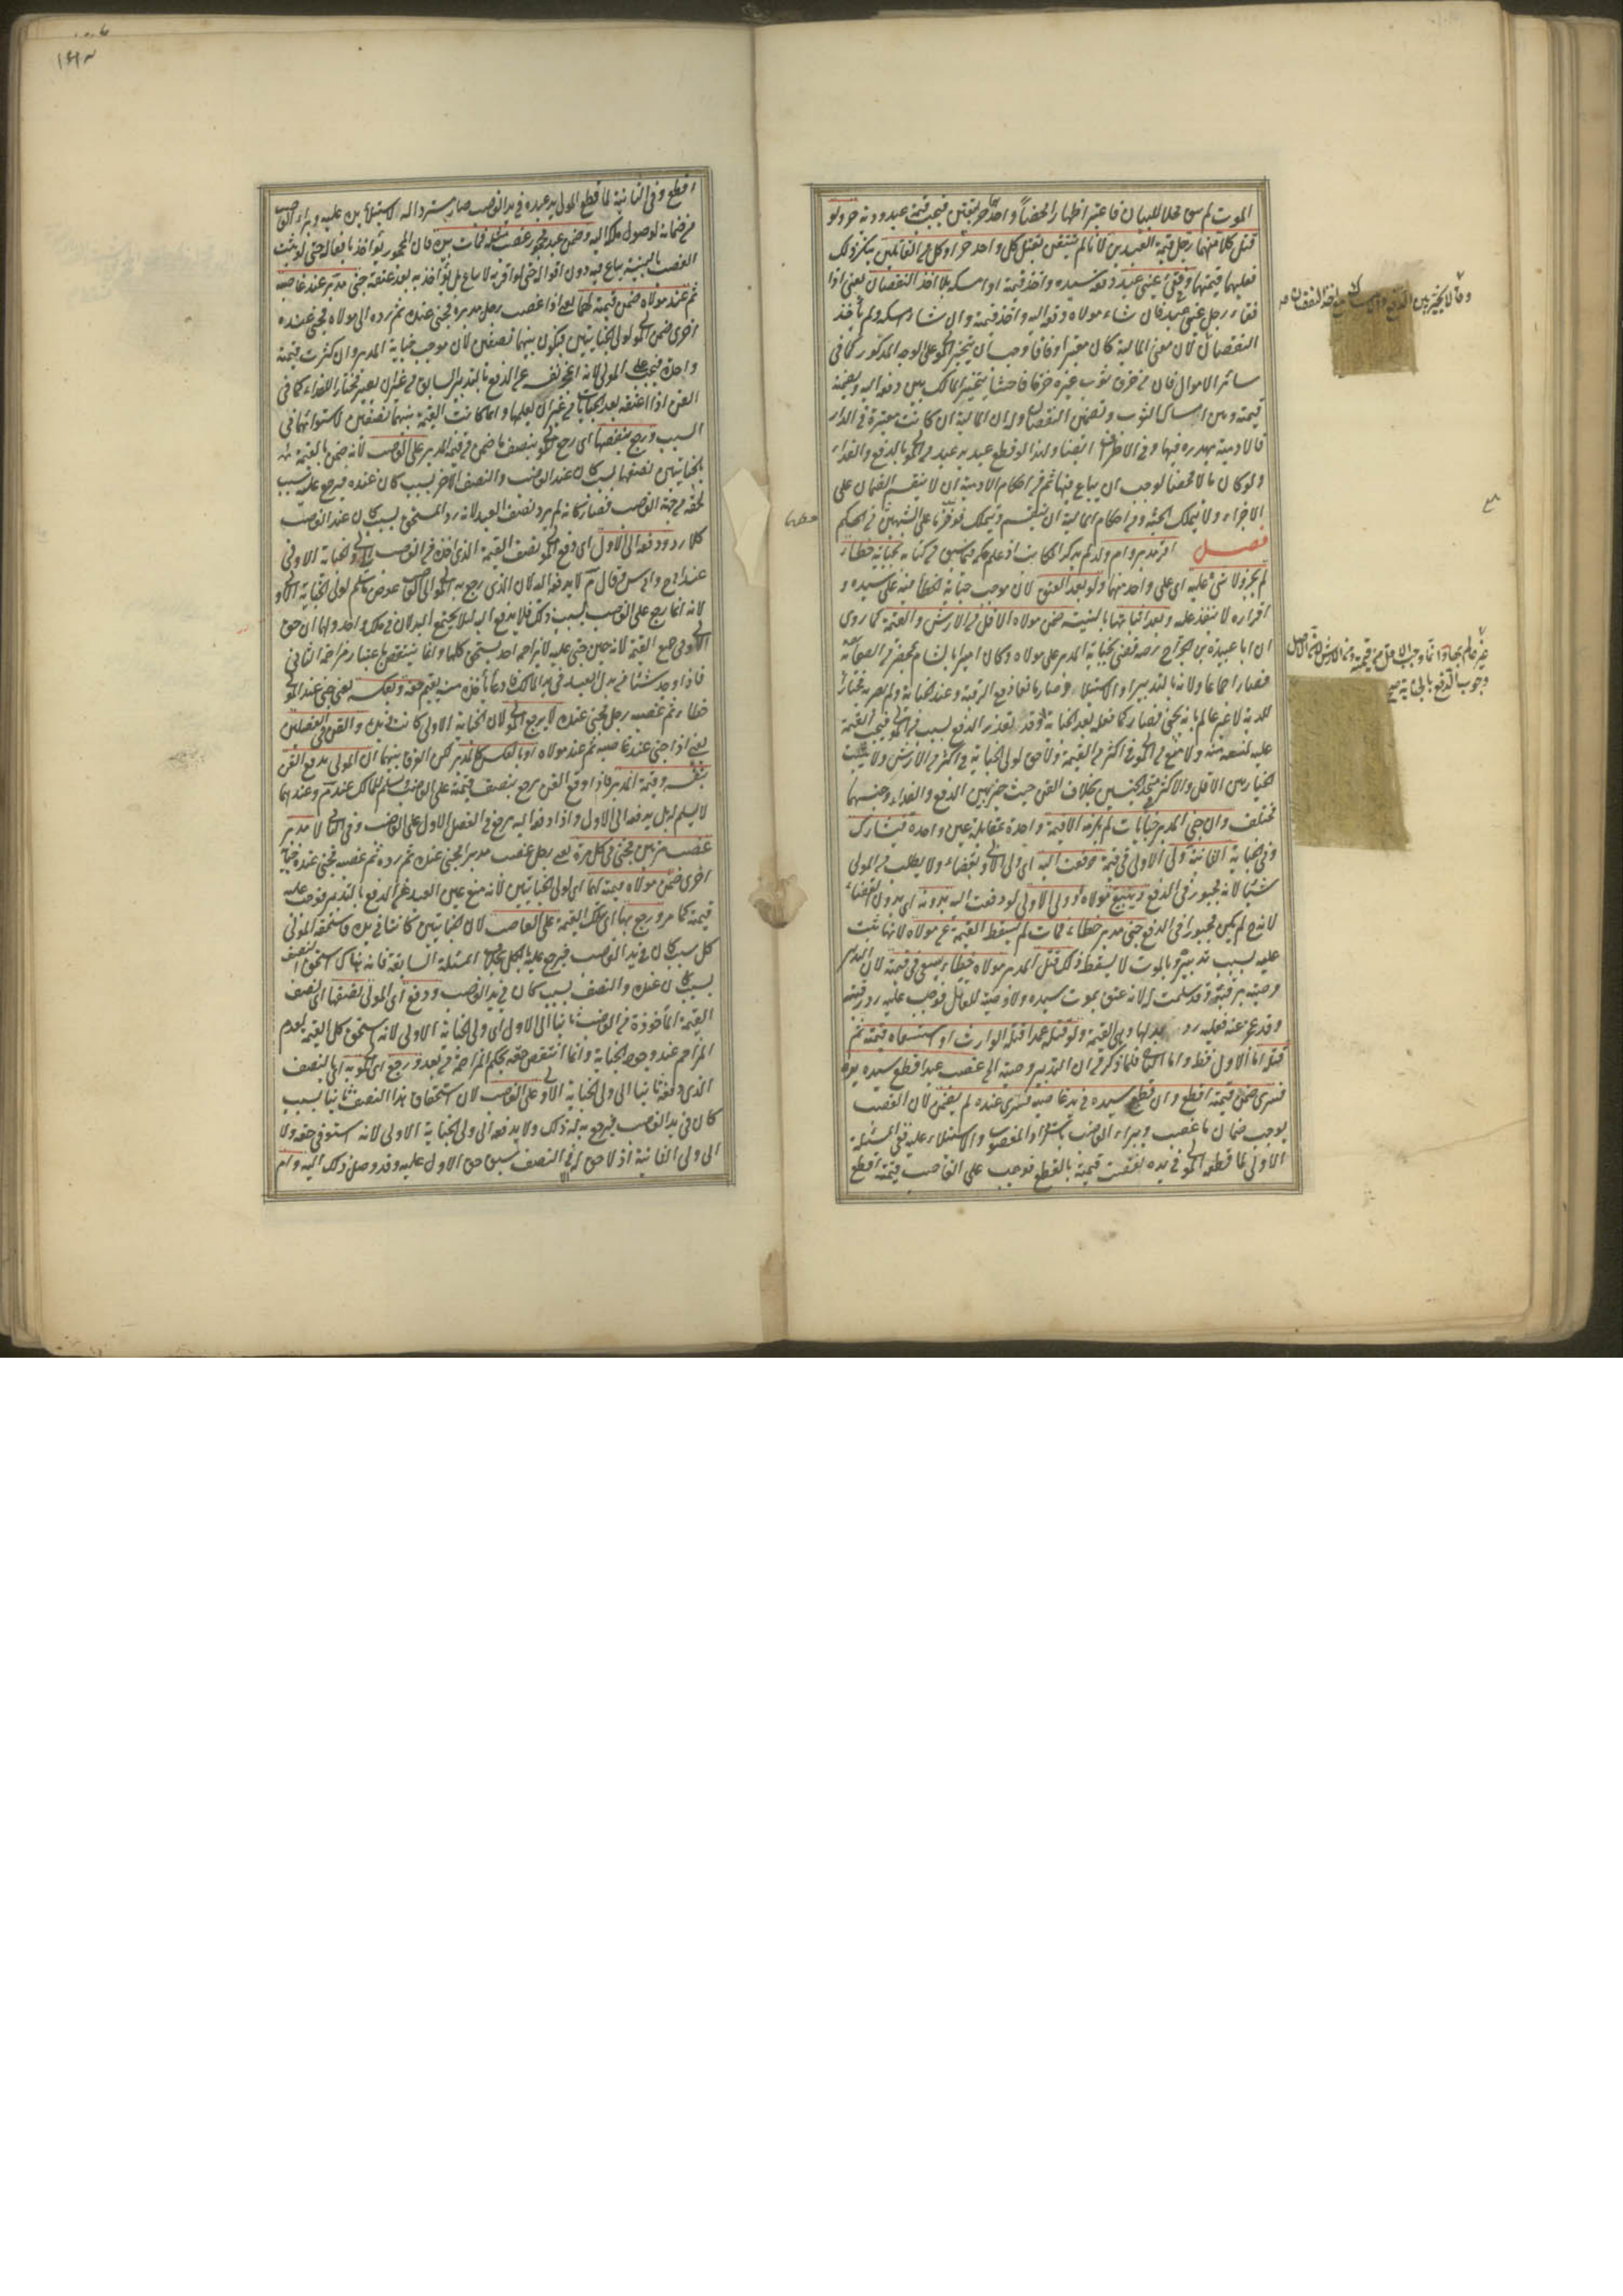 الموت لم يبق محلا للبيان فاعتبر اظهارا محضا واحدهما حر بيقين فيجب قيمة عبد ودية حر ولو
قتل كلا منهما رجل قيمة العبدين لانا لم نتيقن بقتل كل واحد حرا وكل من القاتلين ينكر ذلك
فعليهما قيمتهما وفقئ عيني عبد دفعه سيده واخذ قيمته او امسكه بلا اخذ النقصان يعني اذا
فقأ رجل عيني عبد فان شاء مولاه دفعه اليه واخذ قيمته وان شاء امسكه ولم يأخذ
النقصان لان معنى المالية كان معتبرا وفاقا وجب ان يتخير المولى على الوجه المذكور كما في
سائر الاموال فان من خرق ثوب غيره خرقا فاحشا يتخير المالك بين دفعه اليه وتضمينه
قيمته وبين امساك الثوب وتضمين النقصان وله ان المالية ان كانت معتبرة في الذات
فالادمية مهدرة فيها وفي الاطراف ايضا ولهذا لو قطع عبد يد عبد يؤمر المولى بالدفع او الفداء
ولو كان مالا محضا لوجب ان يباع فيها ثم من احكام الادمية ان لا ينقسم الضمان على
الاجزاء ولا يتملك الجثة ومن احكام المالية ان ينقسم ويتملك فوفرنا على الشبهين في الحكم
فصل اقر مدبر وام ولد لم يذكر المكاتب اذ علم حكمه فيما سبق في كتابه بجناية خطأ
لم يجز ولا شيء عليه اي على واحد منهما ولو بعد العتق لان موجب جناية الخطأ منه على سيده و
اقراره لا ينفذ عليه وبعد اثباتها بالبينة ضمن مولاه الاقل من الارش والقيمة لما روي
ان ابا عبيدة بن الجراح رضه قضى بجناية المدبر على مولاه وكان اميرا بالشام بمحضر من الصحابة
فصار اجماعا ولانه بالتدبير او الاستيلاد صار مانعا دفع الرقبة وعند الجناية ولم يصر به مختارا
للدية لانه غير عالم بانه يجني فصار كما فعله بعد الجناية
عليه لمنعه منه ولا منع من المولى في اكثر من القيمة ولا حق لولي الجناية في اكثر من الارش ولا يثبت
الخيار بين الاقل والاكثر في متحد الجنسين بخلاف القن حيث خير بين الدفع والفداء وجنسهما
مختلف وان جنى المدبر جنايات لم يلزمه الا قيمة واحدة
وفي الجناية الثانية ولي الاولى في قيمة دفعت اليه اي ولي الاولى بقضاء ولا يطلب من المولى
شيئا لانه مجبور في الدفع ويتبع مولاه او ولي الاولى لو دفعت اليه بدونه اي بدون القضاء
لانه ح لم يكن مجبورا في الدفع جنى مدبر خطاء فمات لم يسقط القيمة عن مولاه لانها ثبتت
عليه بسبب تدبيره وبالموت لا يسقط ذلك قتل المدبر مولاه خطاء يسعى في قيمته لان التدبير
وصية برقبته وقد سلمت له لانه عتق بموت سيده ولا وصية للقاتل فوجب عليه رد رقبته
وقد عجز عنه فعليه رد بدلها وهي القيمة ولو قتله عمدا قتله الوارث او استسعاه في قيمته ثم
قتله اما الاول فظ واما الثاني فلما ذكر من ان التدبير وصية الى غصب عبدا قطع سيده يده
فسرى ضمن قيمته اقطع وان قطع سيده في يد غاصبه فسرى عنده لم يضمن لان الغصب
يوجب ضمان ما غصب ويبرأ الغاصب باسترداد المغصوب والاستيلاء عليه ففي المسئلة
الاولى لما قطعه المولى في يده نقصت قيمته بالقطع فوجب على الغاصب قيمته اقطع
وقالا يخير بين الدفع
غير عالم بها وانما وجب الاقل من قيمته ومن الارش لان الاصل
وجوب الدفع بالجناية صح
اقطع وفي الثانية لما قطع المولى يد عبده في يد الغاصب صار مستردا له لاستيلاء يده عليه وبرأ الغاصب
من ضمانه لوصول ملكه اليه وضمن عبد محجور غصب مثله فمات في يده فان المحجور يؤاخذ بافعاله حتى لو ثبت
الغصب بالبينة يباع فيه دون اقواله حتى لو اقر به لا يباع بل يؤاخذ به بعد عتقه جنى مدبر عند غاصبه
ثم عند مولاه ضمن قيمته لهما يعني اذا غصب رجل مدبرا فجنى عنده ثم رده الى مولاه فجنى عنده
اخرى ضمن المولى لولي الجنايتين فتكون بينهما نصفين لان موجب جناية المدبر وان كثرت قيمة
واحدة فيجب على المولى لانه اعجز نفسه عن الدفع بالتدبير السابق من غير ان يصير مختارا للفداء كما في
القن اذا اعتقه بعد الجنايات من غير ان يعلمها وانما كانت القيمة بينهما نصفين لاستوائهما في
السبب ورجع بنصفها اي رجع المولى بنصف ما ضمن من قيمة المدبر على الغاصب لانه ضمن بالقيمة
بالجنايتين نصفها بسبب كان عند الغاصب والنصف الاخر بسبب كان عنده فيرجع عليه بسبب
لحقه من جهة الغاصب فصار كانه لم يرد نصف العبد لان رد المستحق بسبب كان عند الغاصب
كلا رد ودفعه الى الاول اي دفع المولى نصف القيمة الذي اخذه من الغاصب الى ولي الجناية الاولى
لانه انما رجع على الغاصب بسبب ذلك فلا يدفع اليه لئلا يجتمع البدلان في ملك واحد ولهما ان حق
الاول في جميع القيمة لانه حين جنى عليه لا يزاحمه احد يستحق كلها وانما ينتقص باعتبار مزاحمة الثاني
فاذا وجد شيئا من بدل العبد في يد المالك فارغا يأخذه منه ليتم حقه وبعكسه يعني جنى عند المولى
خطاء ثم غصبه رجل فجنى عنده لا يرجع المولى لان الجناية الاولى كانت في يده والقن في الفصلين
يعني اذا جنى عند غاصبه ثم عند مولاه او بالعكس كالمدبر لكن الفرق بينهما ان المولى يدفع القن
بنفسه وقيمة المدبر فاذا دفع القن يرجع بنصف قيمته على الغاصب ويسلم للمالك عند م وعندهما
لا يسلم له بل يدفعه الى الاول واذا دفعه اليه يرجع في الفصل الاول على الغاصب وفي الثاني لا مدبر
غصب مرتين فجنى في كل مرة يعني رجل غصب مدبرا فجنى عنده ثم رده ثم غصبه فجنى عنده جناية
اخرى ضمن مولاه قيمته لهما اي لولي الجنايتين لانه منع عين العبد عن الدفع بالتدبير فوجب عليه
قيمته كما مر ورجع بها اي بتلك القيمة على الغاصب لان الجنايتين كانتا في يده فاستحقه المولى
كل بسبب كان في يد الغاصب فيرجع عليه بالكل بخلاف المسئلة السابقة فانه هناك استحق النصف
بسبب كان عنده والنصف بسبب كان في يد الغاصب ودفع اي المولى نصفها اي نصف
القيمة المأخوذة من الغاصب ثانيا الى الاول اي ولي الجناية الاولى لانه استحق كل القيمة لعدم
المزاحم عند وجود الجناية وانما انتقص حقه بحكم المزاحمة من بعد ورجع اي المولى به اي بالنصف
الذي دفعه ثانيا الى ولي الجناية الاولى على الغاصب لان استحقاق هذا النصف ثانيا بسبب
كان في يد الغاصب فيرجع به لذلك ولا يدفعه الى ولي الجناية الاولى لانه استوفى حقه ولا
الى ولي الثانية اذ لا حق له في النصف لسبق حق الاول عليه وقد وصل ذلك اليه وام